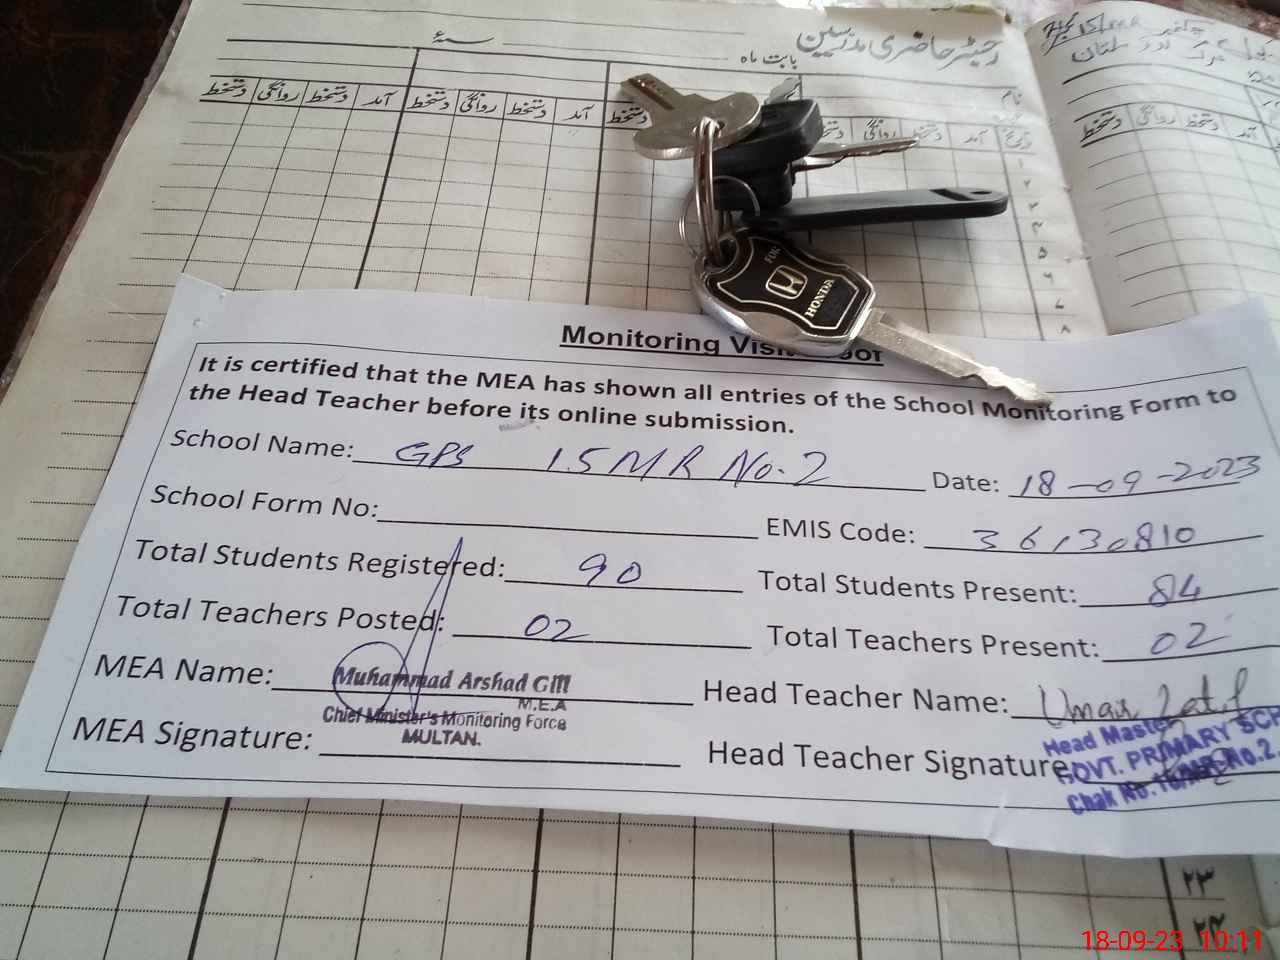 رجسٹر حاضری مدرسین
بابت ماہ سنۂ
نام
تاریخ آمد دستخط روانگی دستخط آمد دستخط روانگی دستخط آمد دستخط روانگی دستخط
۱
۲
۳
۴
۵
۶
۷
۸
آمد دستخط روانگی دستخط
FOR
HONDA
Monitoring
It is certified that the MEA has shown all entries of the School Monitoring Form to
the Head Teacher before its online submission.
School Name: GPS 15 MR No. 2 Date: 18-09-2023
School Form No: EMIS Code: 36130810
Total Students Registered: 90 Total Students Present: 84
Total Teachers Posted: 02 Total Teachers Present: 02
MEA Name: Muhammad Arshad Gill Head Teacher Name: Umar Latif
M.E.A
Chief Minister's Monitoring Force
MULTAN.
MEA Signature: Head Teacher Signature
Head Master
GOVT. PRIMARY
Chak No. No.2.
۲۳
۲۴
18-09-23 10:11